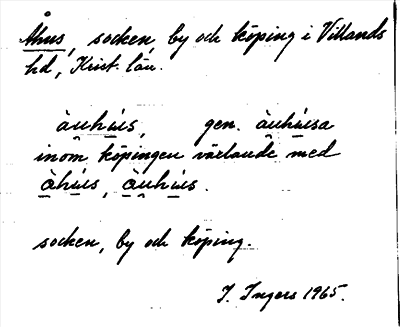 Åhus, socken, by och köping i Villands
hd, Krist. län.
àu̯hú̱s, gen. àu̯hú̱sa
inom köpingen växlande med
à̱hú̱s, à̱u̯hú̱s.
socken, by och köping.
I. Ingers 1965.